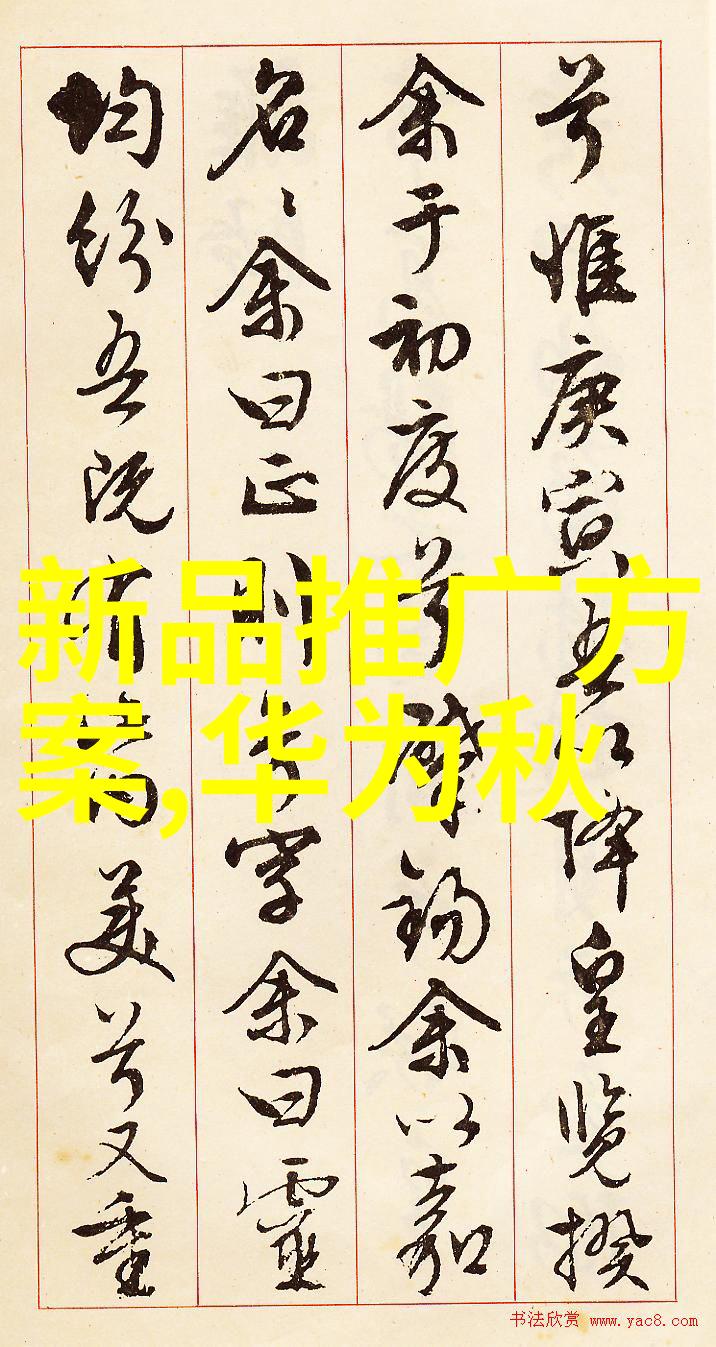 兮惟庚寅吾以降皇覽揆
余于初度兮肇錫余以嘉
名〻余曰正則兮字余曰靈
均紛吾既有此内美兮又重
新品推广方
案,华为秋
书法欣赏 www.yac8.com